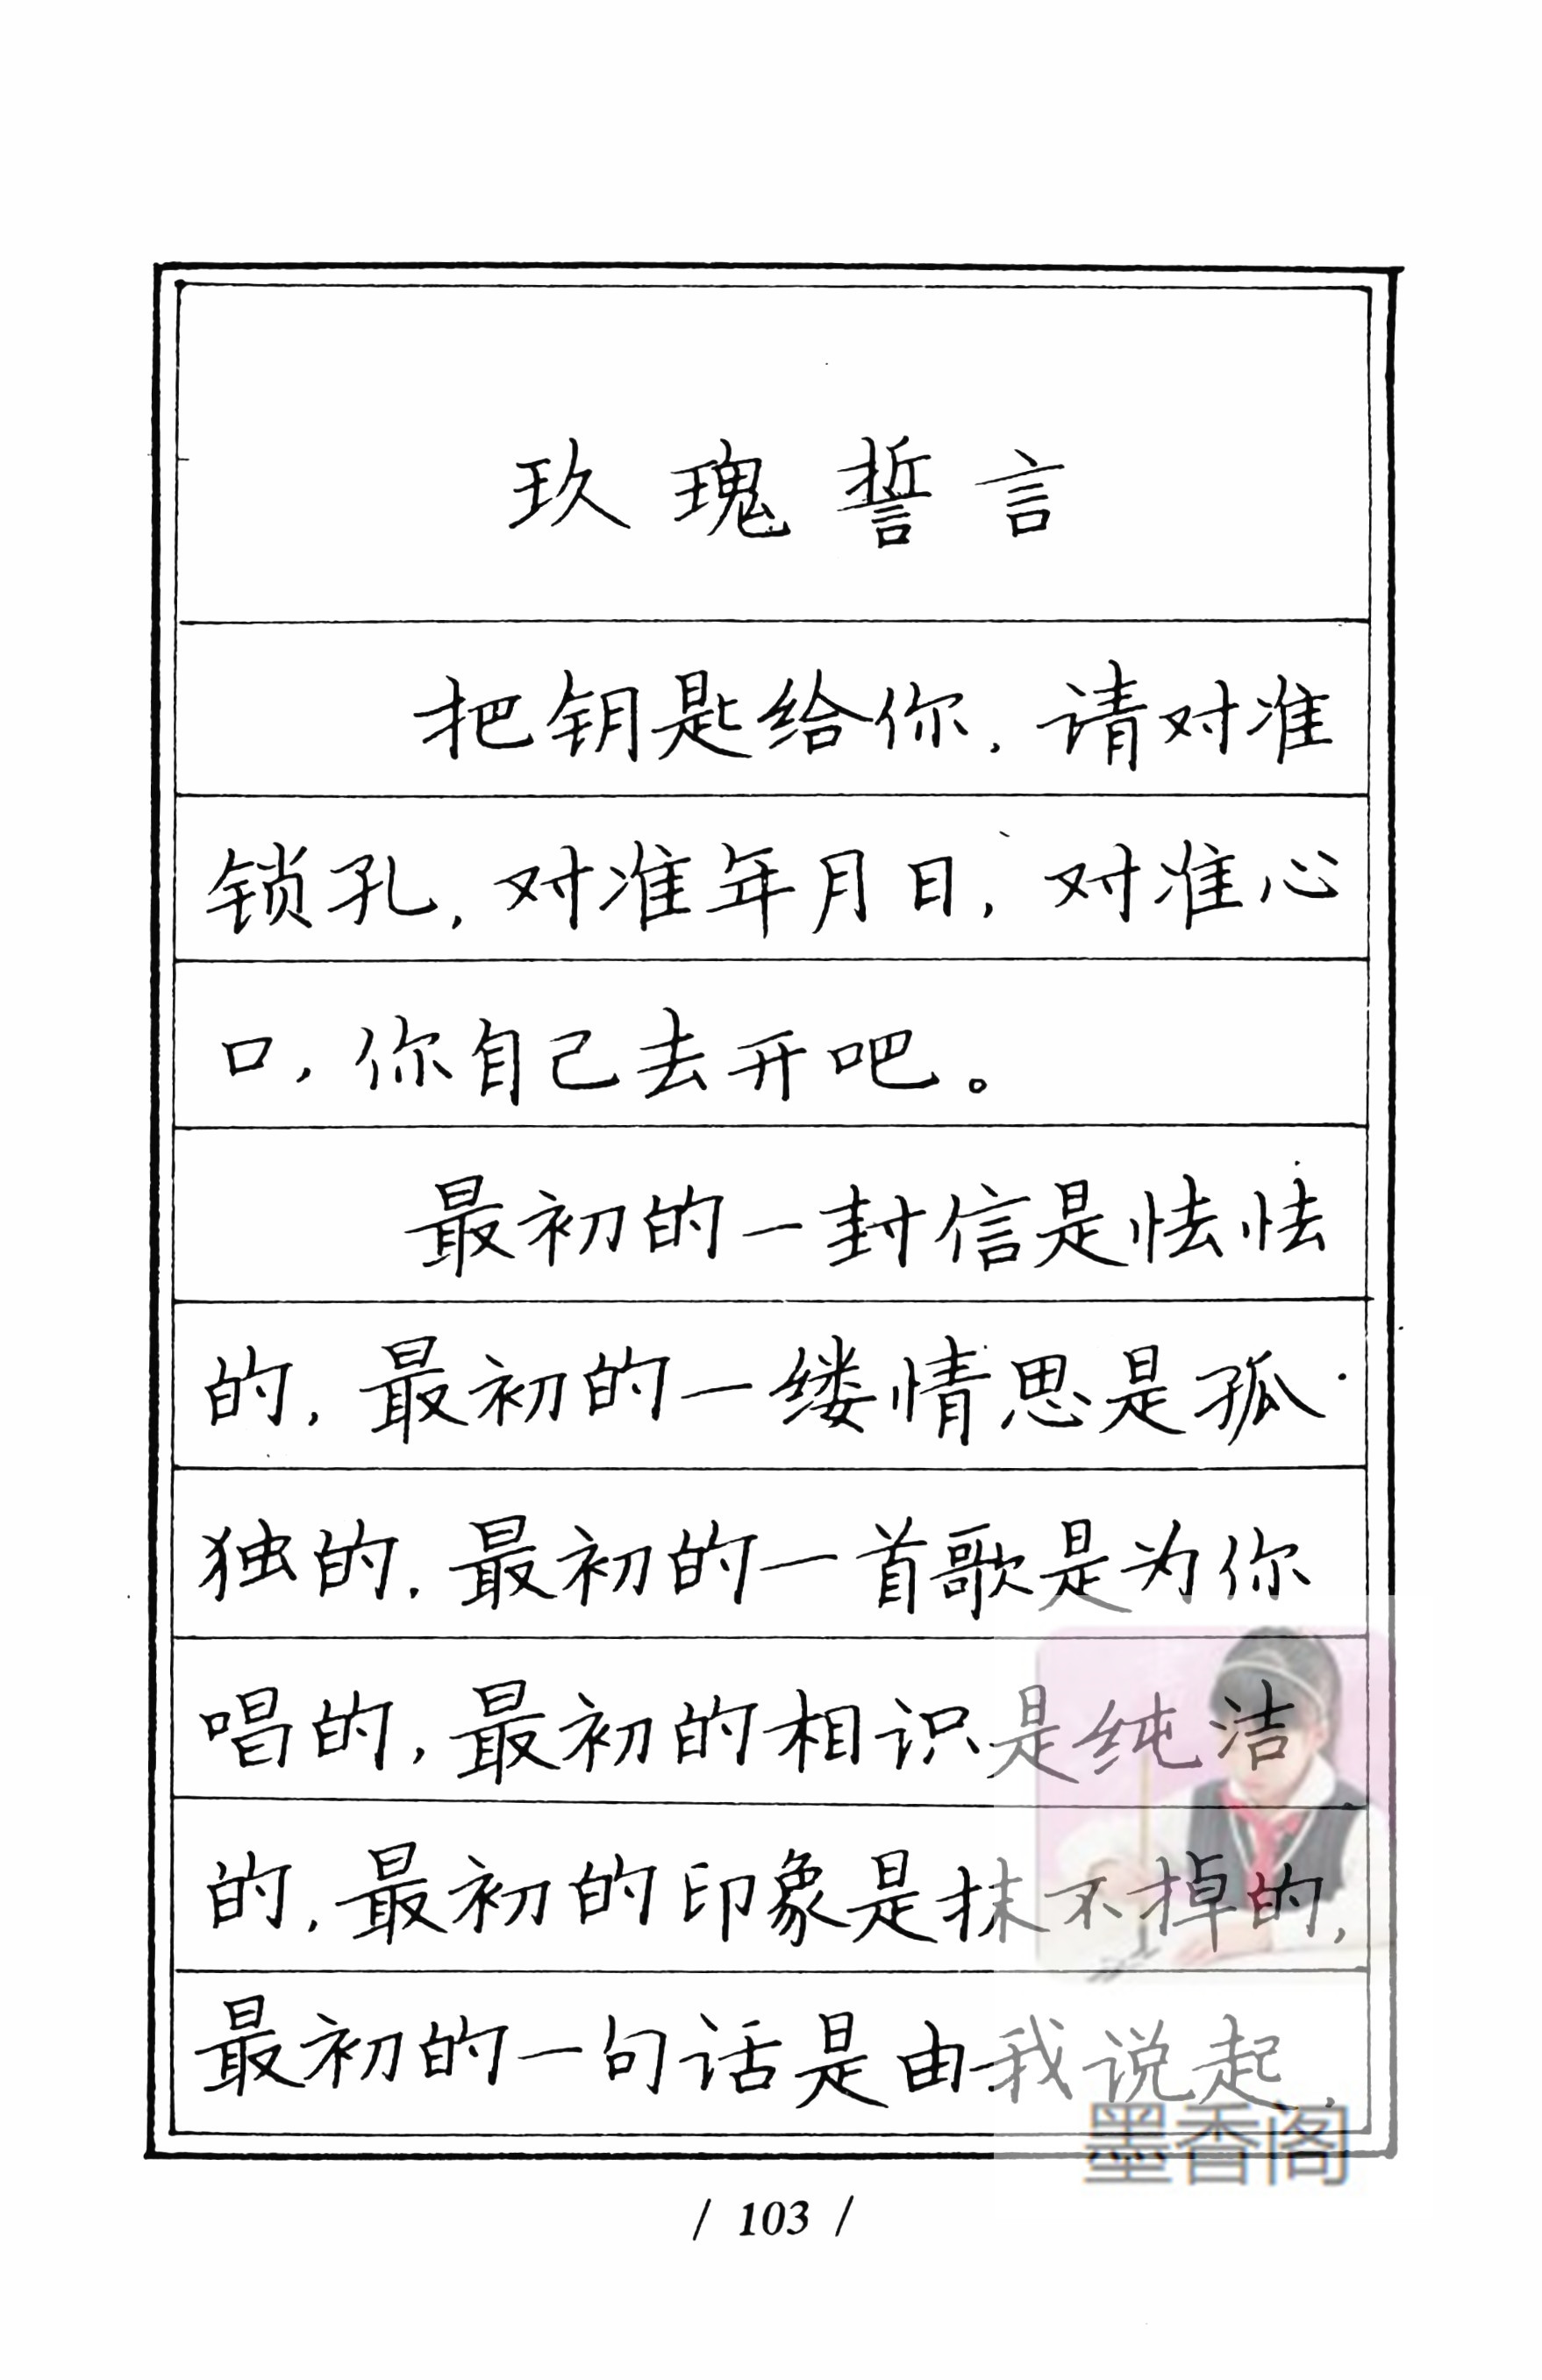 玫瑰誓言
把钥匙给你,请对准
锁孔,对准年月日,对准心
口,你自己去开吧。
最初的一封信是怯怯
的,最初的一缕情思是孤
独的,最初的一首歌是为你
唱的,最初的相识是纯洁
的,最初的印象是抹不掉的,
最初的一句话是由我说起,
墨香阁
/ 103 /